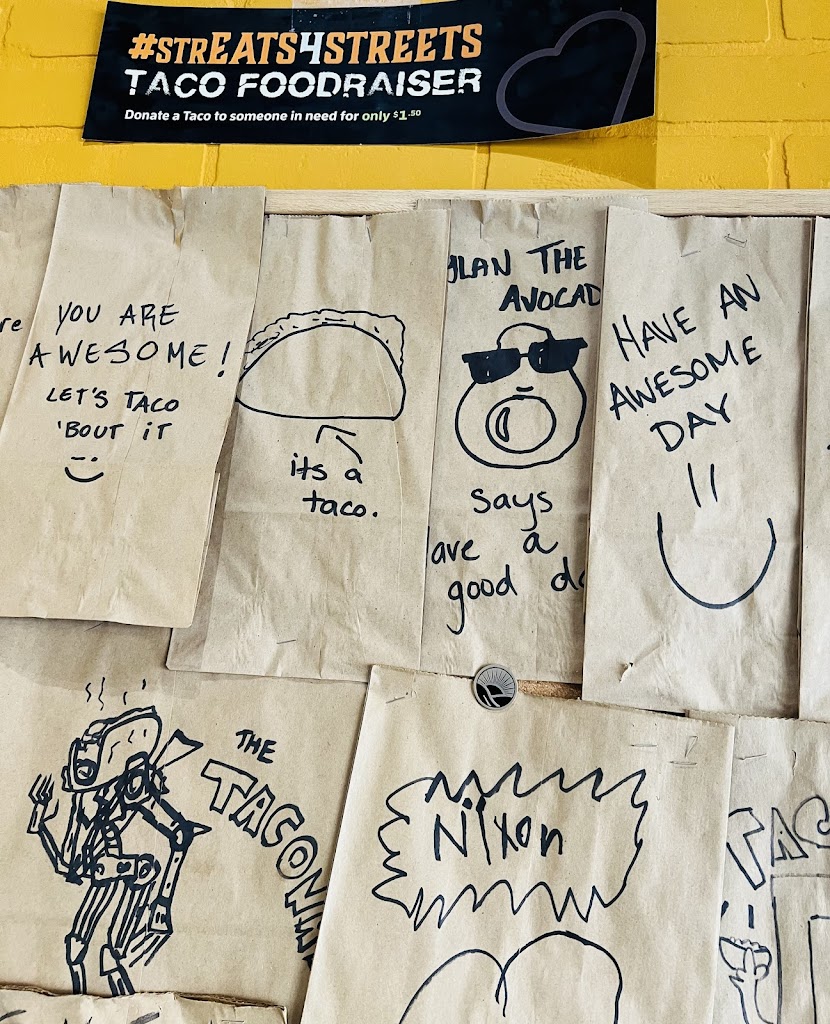 #STREATS4STREETS
TACO FOODRAISER
Donate a Taco to someone in need for only $1.50
re
YOU ARE
AWESOME!
LET'S TACO
'BOUT IT
its a
taco.
THE
AVOCAD
says
ave a
good
HAVE AN
AWESOME
DAY
THE
TACON
Nixon
TAC